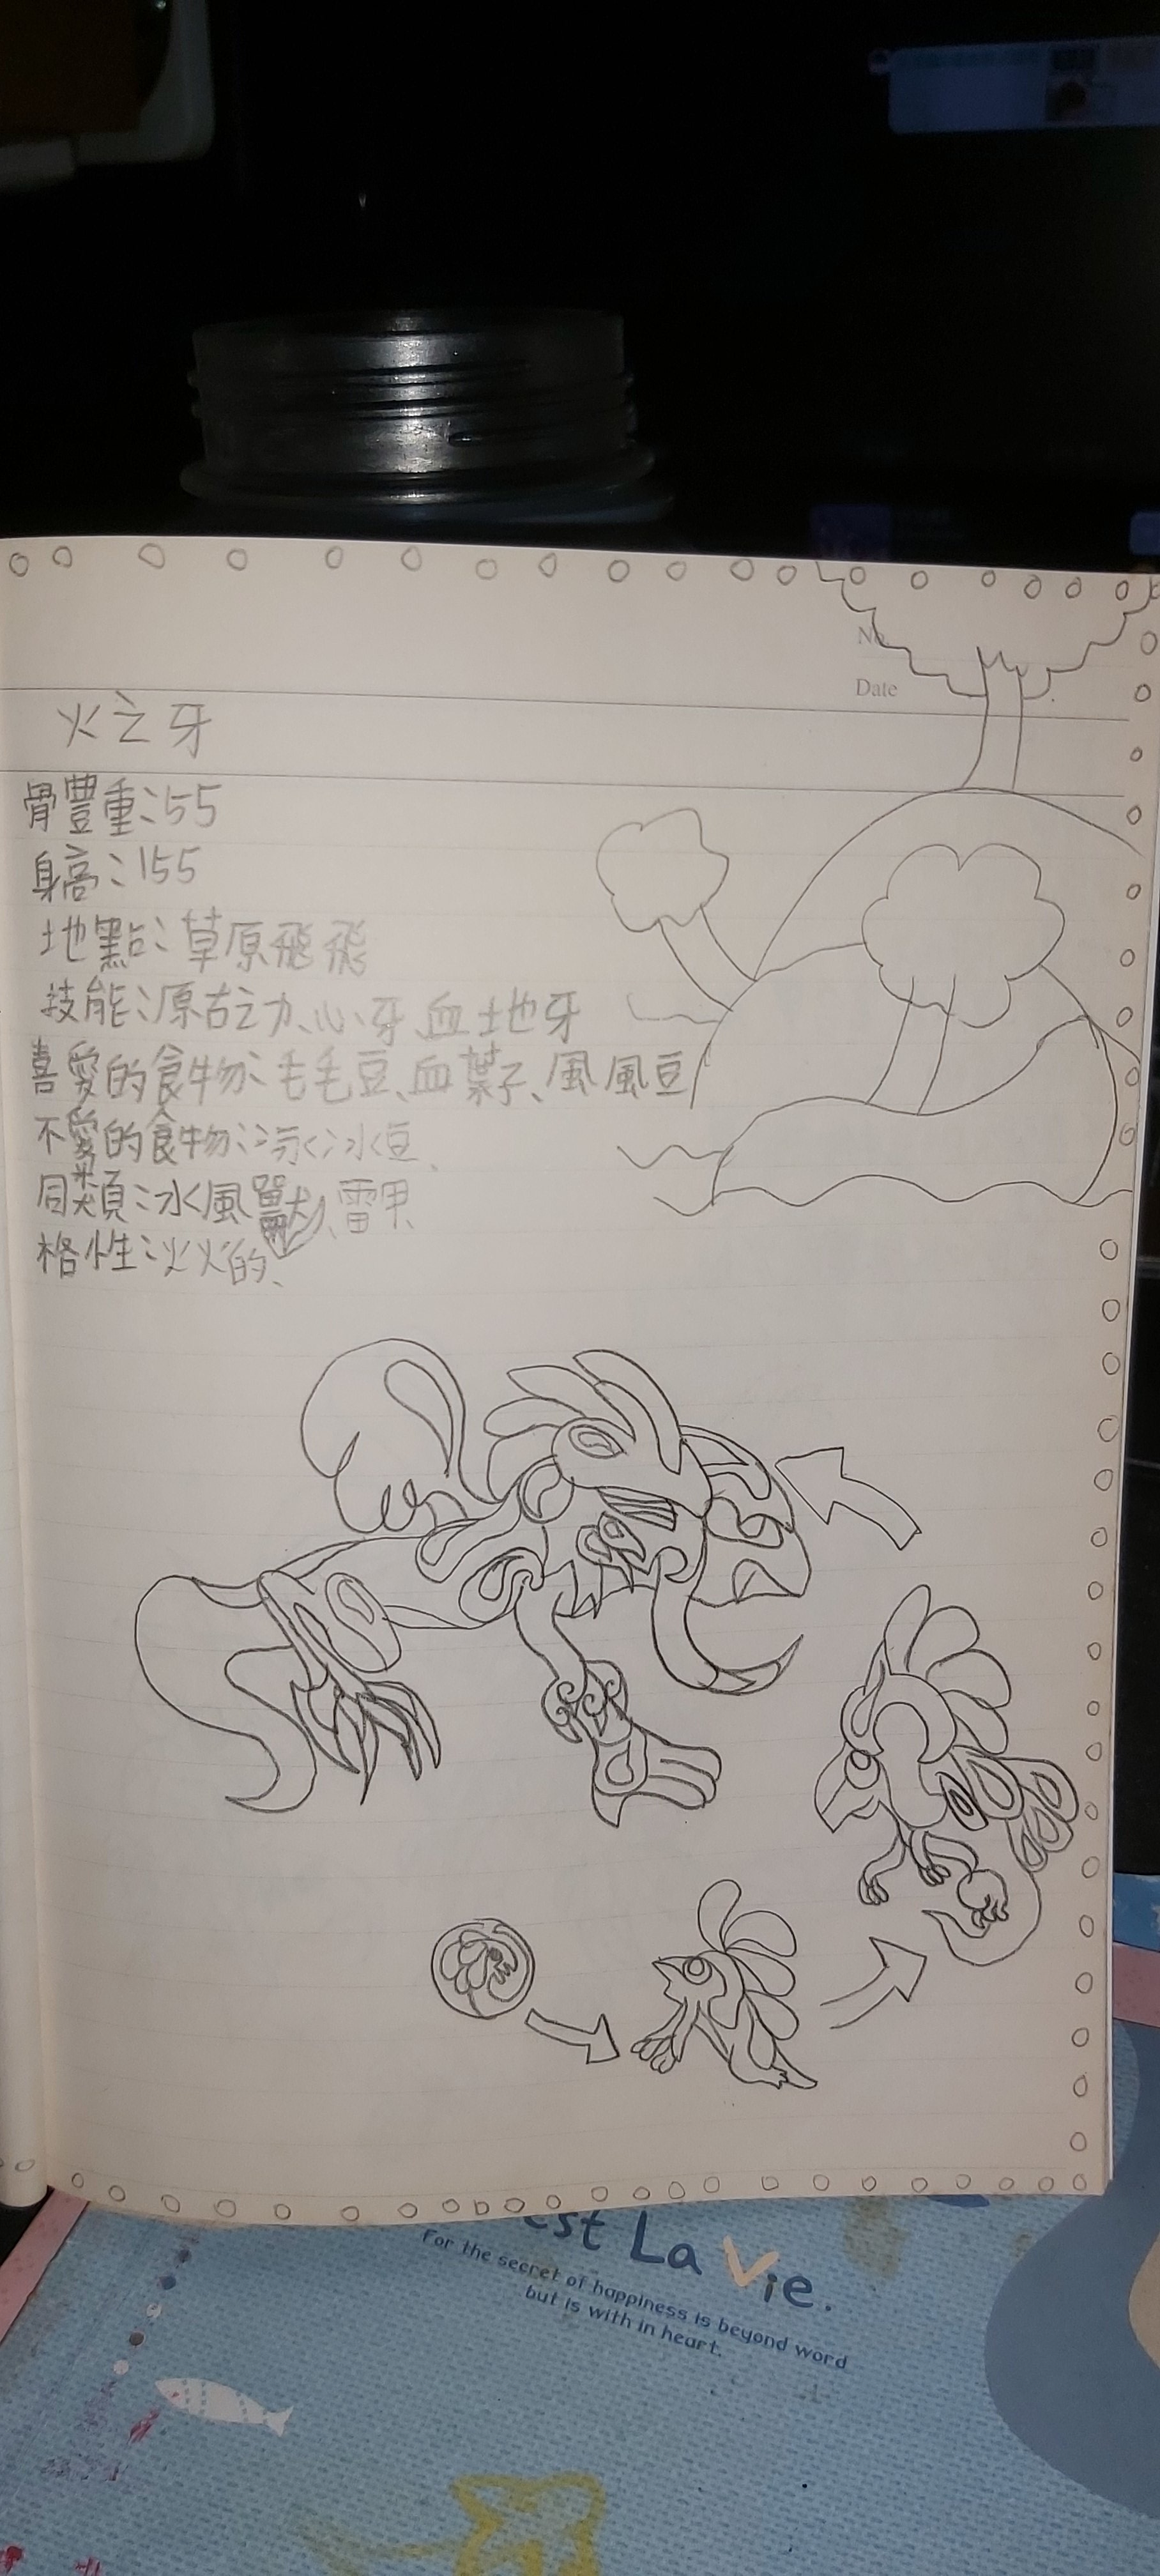 No.
Date
火之牙
骨豊重:55
身高:155
地點:草原飛飛
技能:原古之力、心牙、血土地牙
喜愛的食物:毛毛豆、血葉子、風風豆
不愛的食物:冰豆、
同類:水風獸、雷甲
格性:火火的、
est La Vie.
For the secret of happiness is beyond word
but is with in heart.